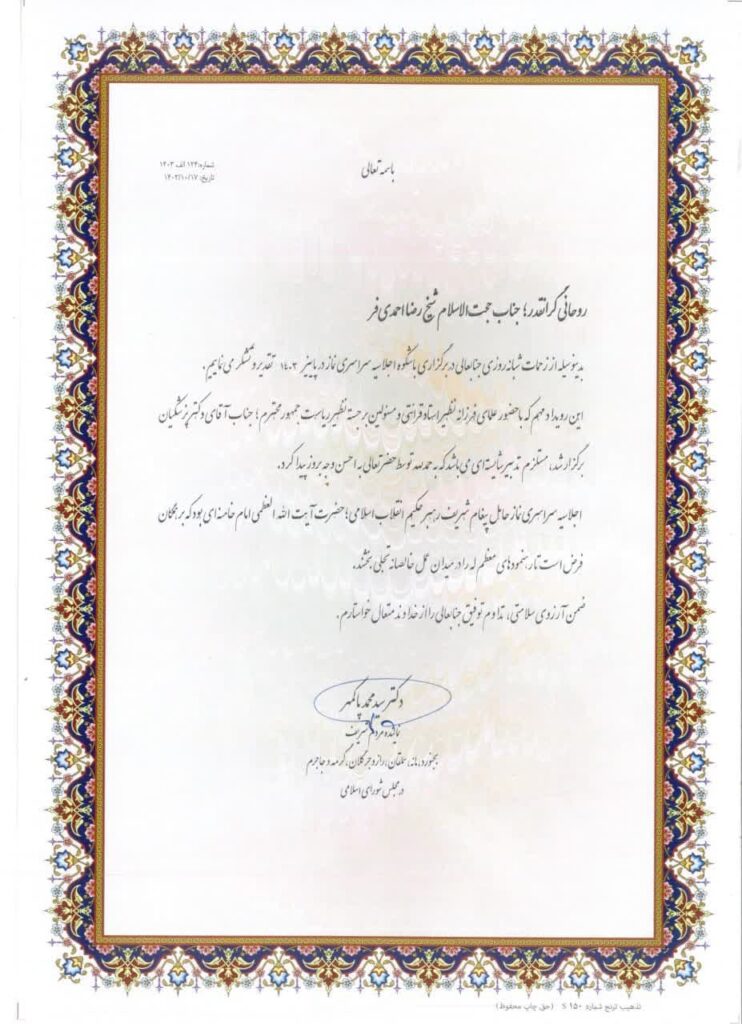 باسمه تعالی
شماره: ۱۲۴ الف ۱۴۰۳
تاریخ: ۱۴۰۲/۱۰/۱۷
روحانی گرانقدر؛ جناب حجت الاسلام شیخ رضا احمدی فر
بدینوسیله از زحمات شبانه روزی جنابعالی در برگزاری باشکوه اجلاسیه سراسری نماز در پاییز ۱۴۰۳ تقدیر و تشکر می نماییم.
این رویداد مهم که با حضور علمای فرزانه نظیر استاد قرائتی و مسئولین برجسته نظیر ریاست جمهور محترم؛ جناب آقای دکتر پزشکیان
برگزار شد، مستلزم تدبیر شایسته ای می باشد که به حمدالله توسط حضرتعالی به احسن وجه بروز پیدا کرد.
اجلاسیه سراسری نماز حامل پیغام شریف رهبر حکیم انقلاب اسلامی؛ حضرت آیت الله العظمی امام خامنه ای بود که بر همگان
فرض است تا رهنمودهای معظم له را در میدان عمل خالصانه تجلی بخشند.
ضمن آرزوی سلامتی، تداوم توفیق جنابعالی را از خداوند متعال خواستارم.
دکتر سید محمد پاکمهر
نماینده مردم شریف
بجنورد، مانه، سملقان، راز و جرگلان، گرمه و جاجرم
در مجلس شورای اسلامی
تذهیب ترنج شماره S ۱۵۰ (حق چاپ محفوظ)